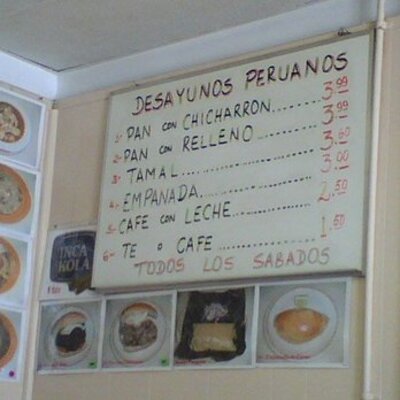 DESAYUNOS PERUANOS
1- PAN CON CHICHARRON........ 3.99
2- PAN CON RELLENO............ 3.99
3- TAMAL................ 3.60
4- EMPANADA................ 3.00
5- CAFE CON LECHE............ 2.50
6- TE O CAFE............ 1.60
TODOS LOS SABADOS
INCA
KOLA